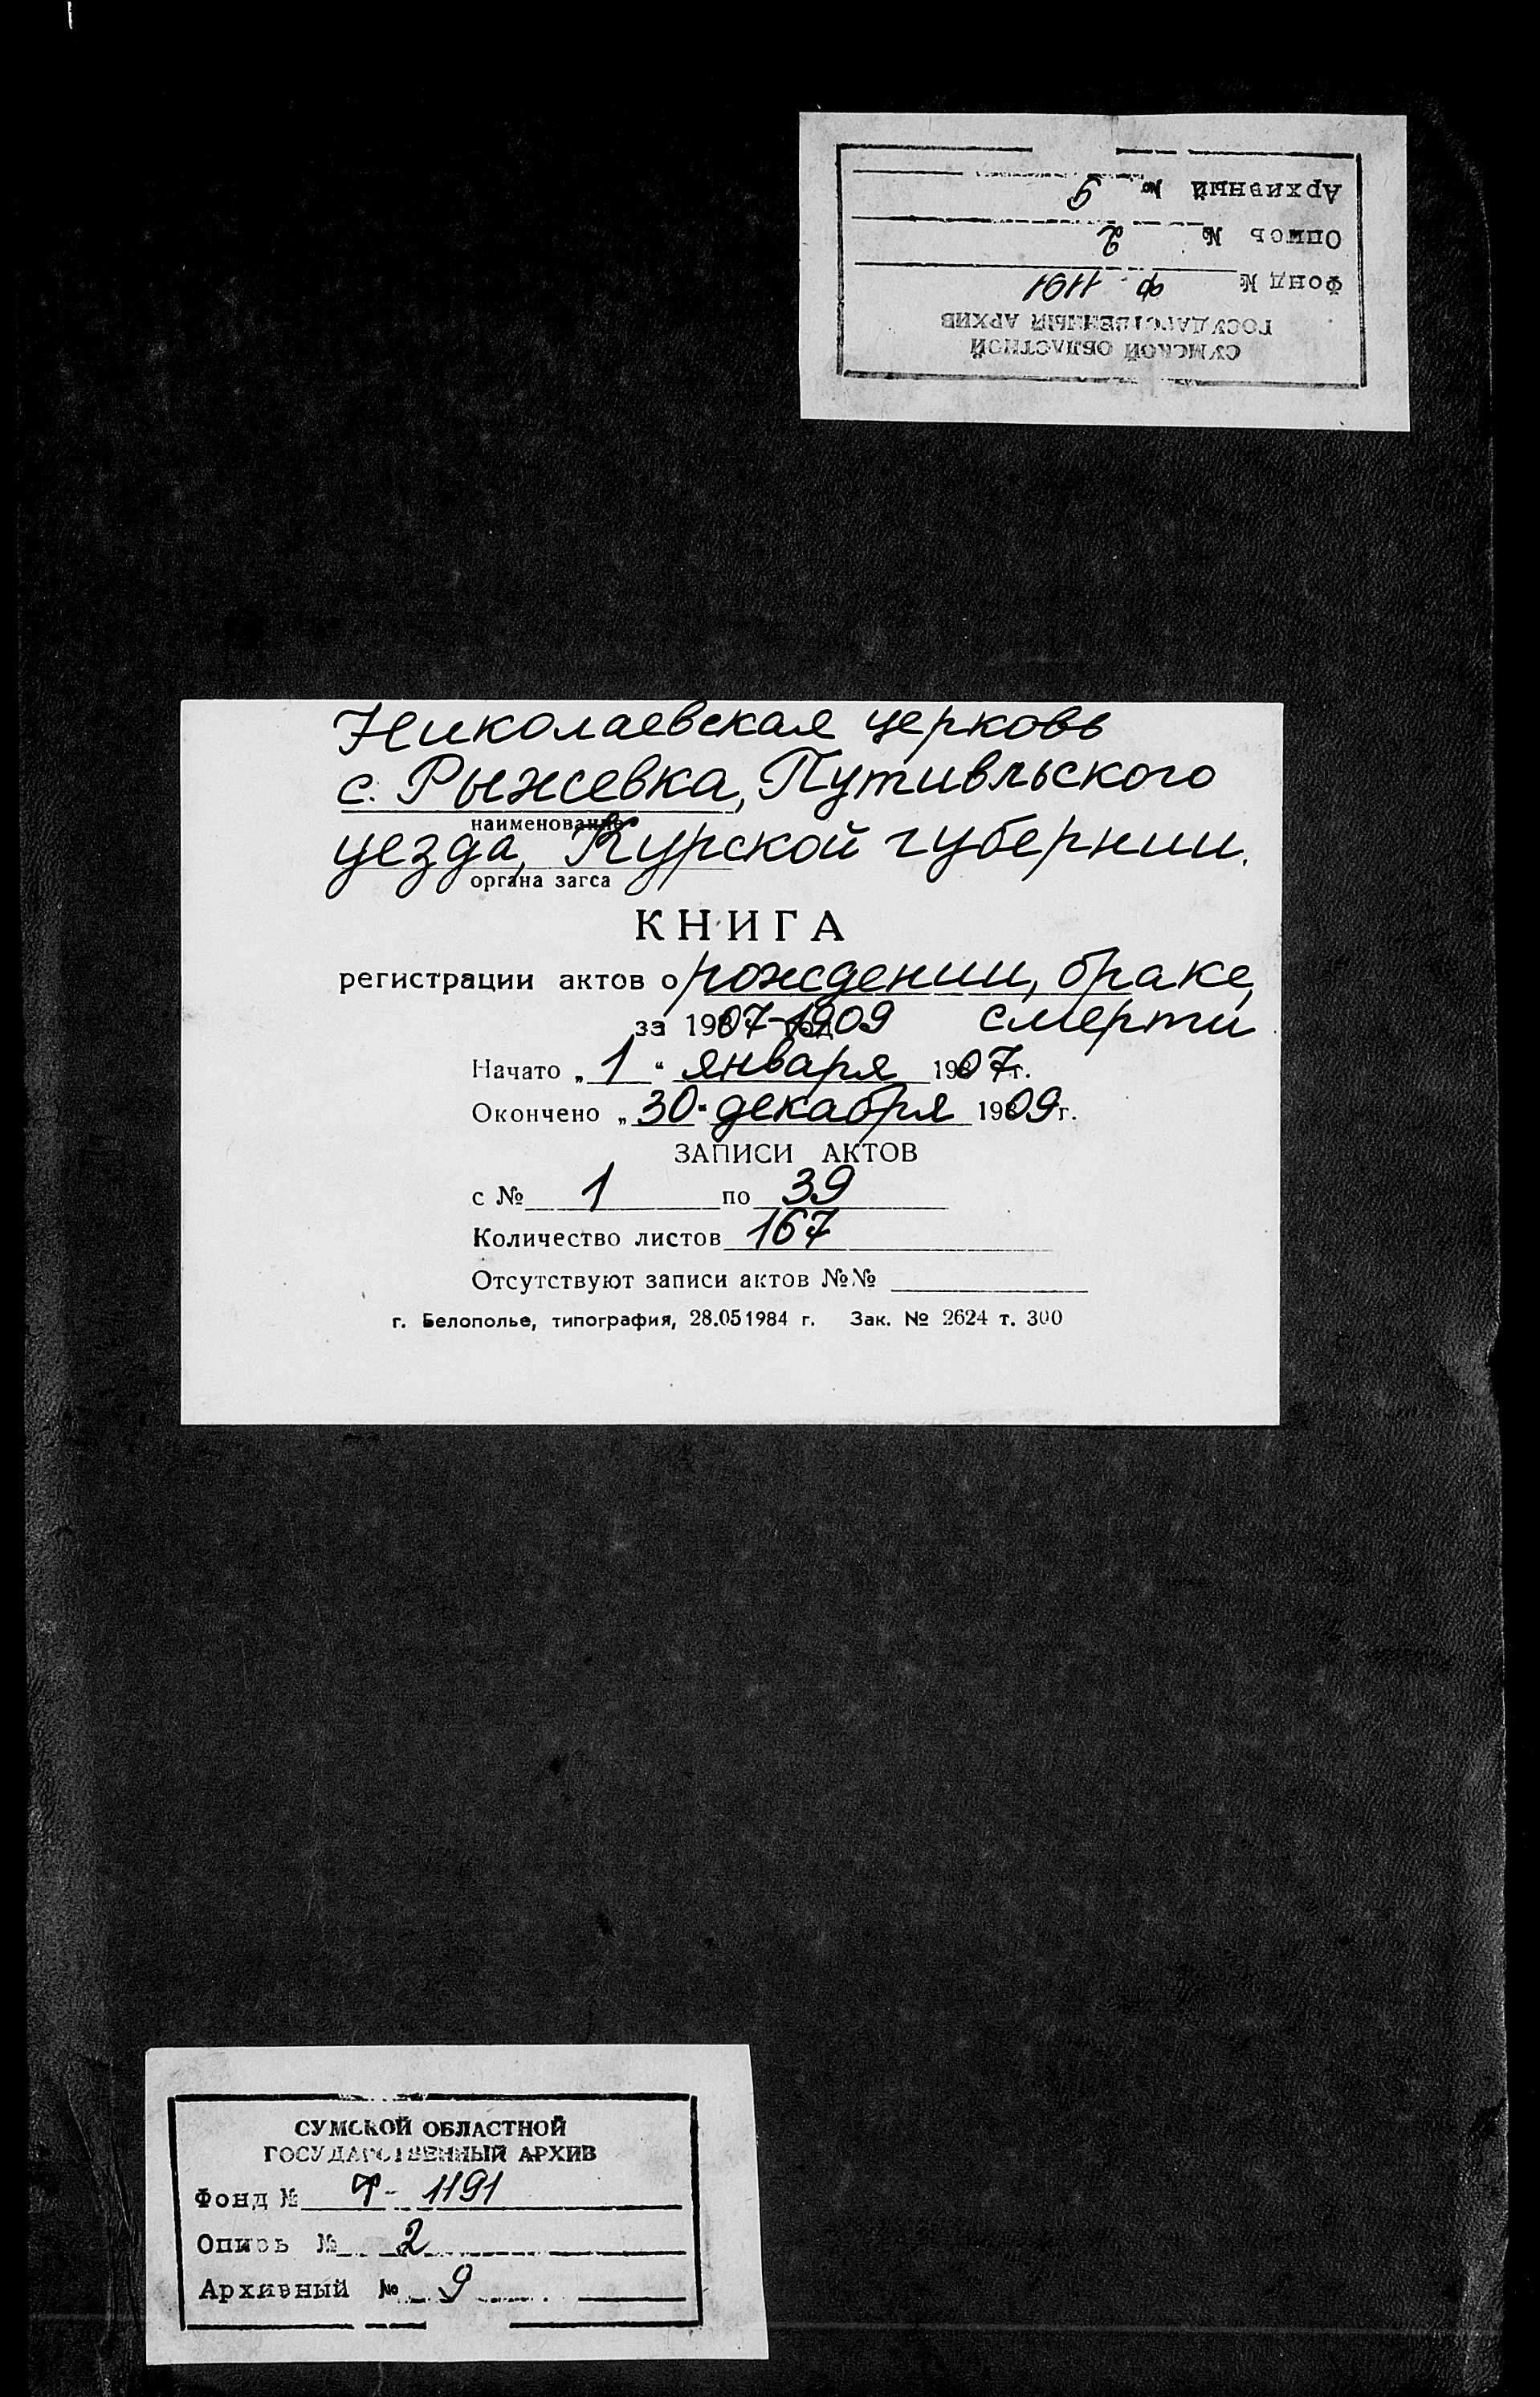 СУМСКОЙ ОБЛАСТНОЙ
ГОСУДАРСТВЕННЫЙ АРХИВ
Фонд № ф. 1191
Опись № 2
Архивный № 9
Николаевская церковь
с. Рыжевка, Путивльского
наименование
уезда, Курской губернии.
органа загса
КНИГА
регистрации актов о рождении, браке,
за 1907-1909 смерти
Начато „1“ января 1907 г.
Окончено „30“ декабря 1909 г.
ЗАПИСИ АКТОВ
с № 1 по 39
Количество листов 167
Отсутствуют записи актов №№
г. Белополье, типография, 28.051984 г. Зак. № 2624 т. 300
СУМСКОЙ ОБЛАСТНОЙ
ГОСУДАРСТВЕННЫЙ АРХИВ
Фонд № Ф- 1191
Опись № 2
Архивный № 9